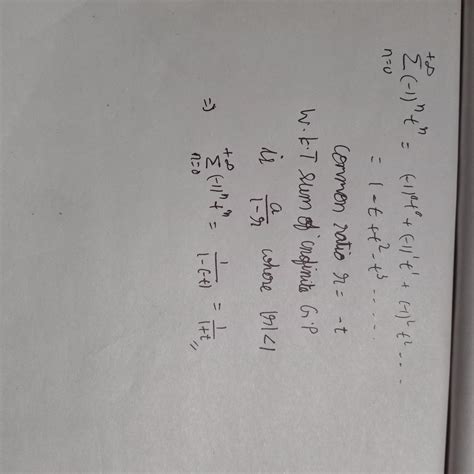 +∞
Σ (-1)ⁿ tⁿ = (-1)⁰t⁰ + (-1)¹t¹ + (-1)² t² ....
n=0
= 1 - t + t² - t³ ......
common ratio r = -t
W.K.T sum of infinite G.P
is a/(1-r) where |r|<1
+∞
⇒ Σ (-1)ⁿ tⁿ = 1/(1-(-t)) = 1/(1+t) //
n=0